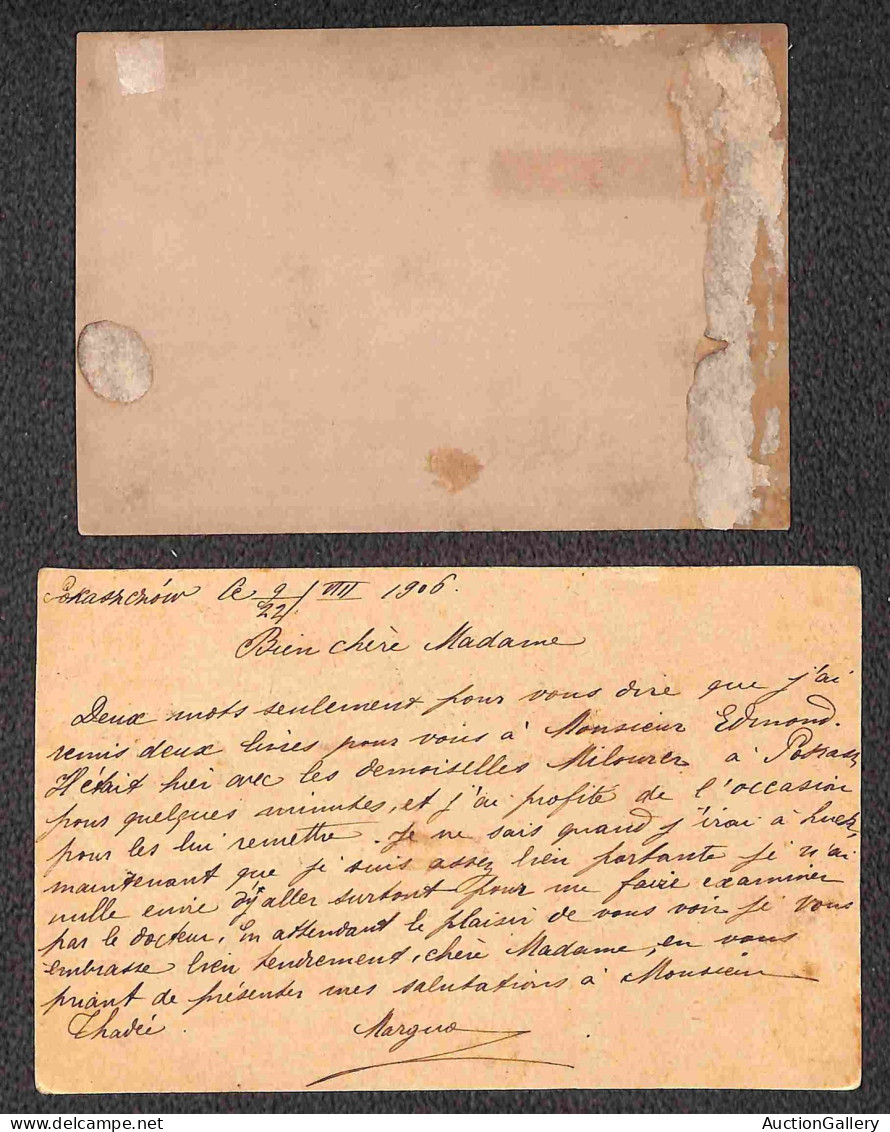 Pokaszczów le 9/22/ VIII 1906.
Bien chère Madame
Deux mots seulement pour vous dire que j'ai
remis deux livres pour vous à Monsieur Edmond.
Il était hier avec les demoiselles à Pokasz
pour quelques minutes, et j'ai profité de l'occasion
pour les lui remettre. Je ne sais quand j'irai à Luck,
maintenant que je suis assez bien portante je n'ai
nulle envie d'y aller surtout pour me faire examiner
par le docteur. En attendant le plaisir de vous voir je vous
embrasse bien tendrement, chère Madame, en vous
priant de présenter mes salutations à Monsieur
Thadée.
AuctionGallery